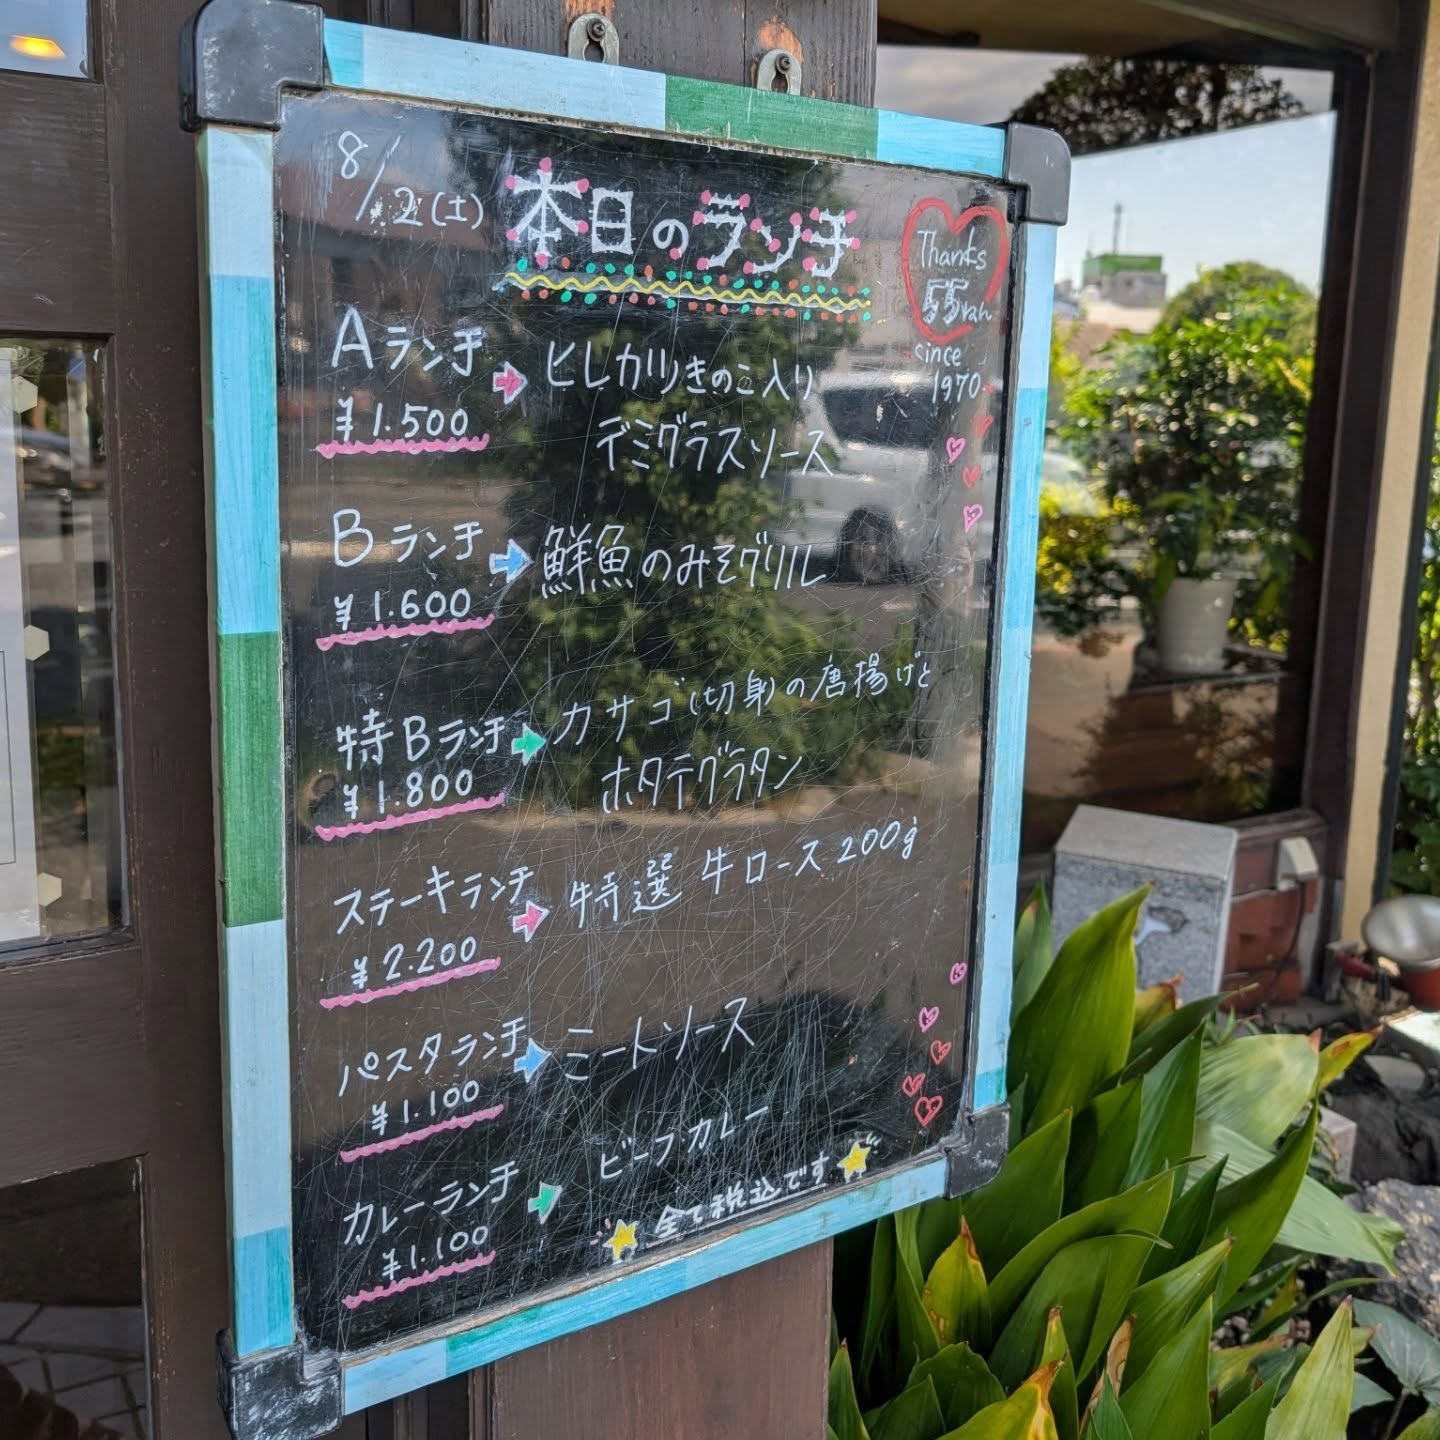 8/2(土) 本日のランチ
Thanks
55th
since
1970
Aランチ ➡ ヒレカツきのこ入り
¥1.500 デミグラスソース
Bランチ ➡ 鮮魚のみそグリル
¥1.600
特Bランチ ➡ カサゴ(切身)の唐揚げと
¥1.800 ホタテグラタン
ステーキランチ ➡ 特選 牛ロース200g
¥2.200
パスタランチ ➡ ミートソース
¥1.100
カレーランチ ➡ ビーフカレー
¥1.100
全て税込です